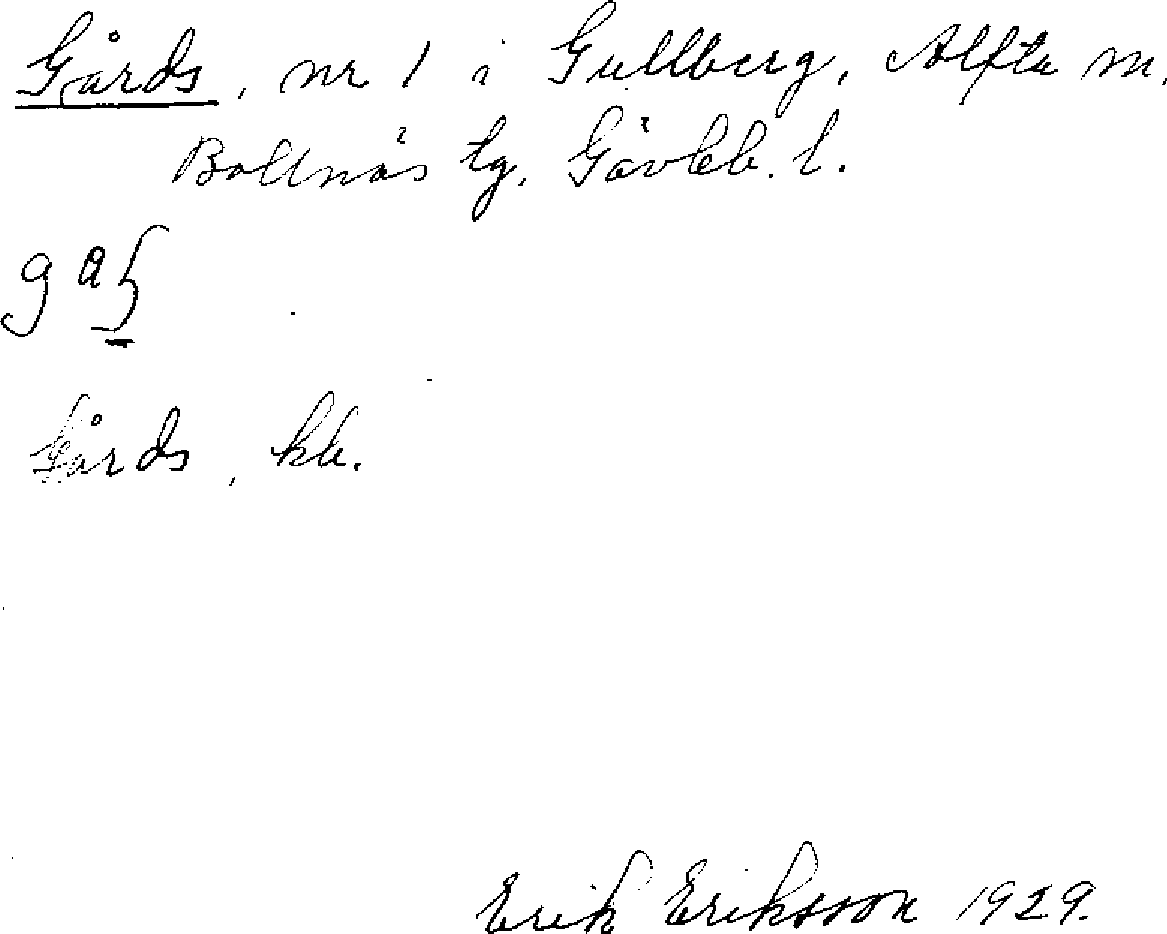 Gårds, nr 1 i Gullberg, Alfta m.
Bollnäs tg. Gävleb. l.
Gårds, kb.
Erik Eriksson 1929.